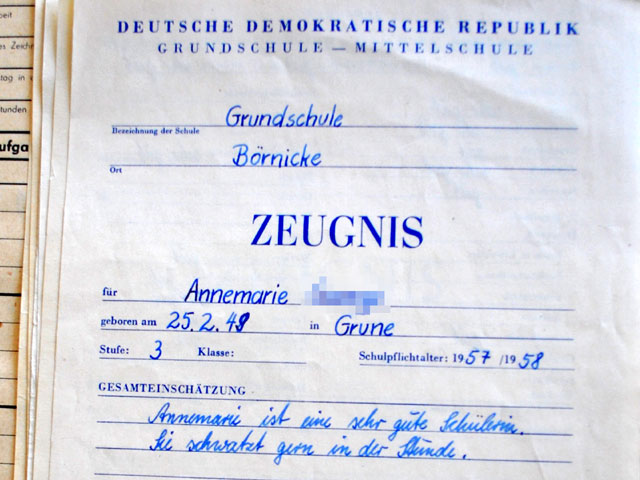 DEUTSCHE DEMOKRATISCHE REPUBLIK
GRUNDSCHULE — MITTELSCHULE
Grundschule
Bezeichnung der Schule
Börnicke
Ort
ZEUGNIS
für Annemarie
geboren am 25.2.49 in Grune
Stufe: 3 Klasse: Schulpflichtalter: 1957/1958
GESAMTEINSCHÄTZUNG
Annemarie ist eine sehr gute Schülerin.
Sie schwatzt gern in der Stunde.